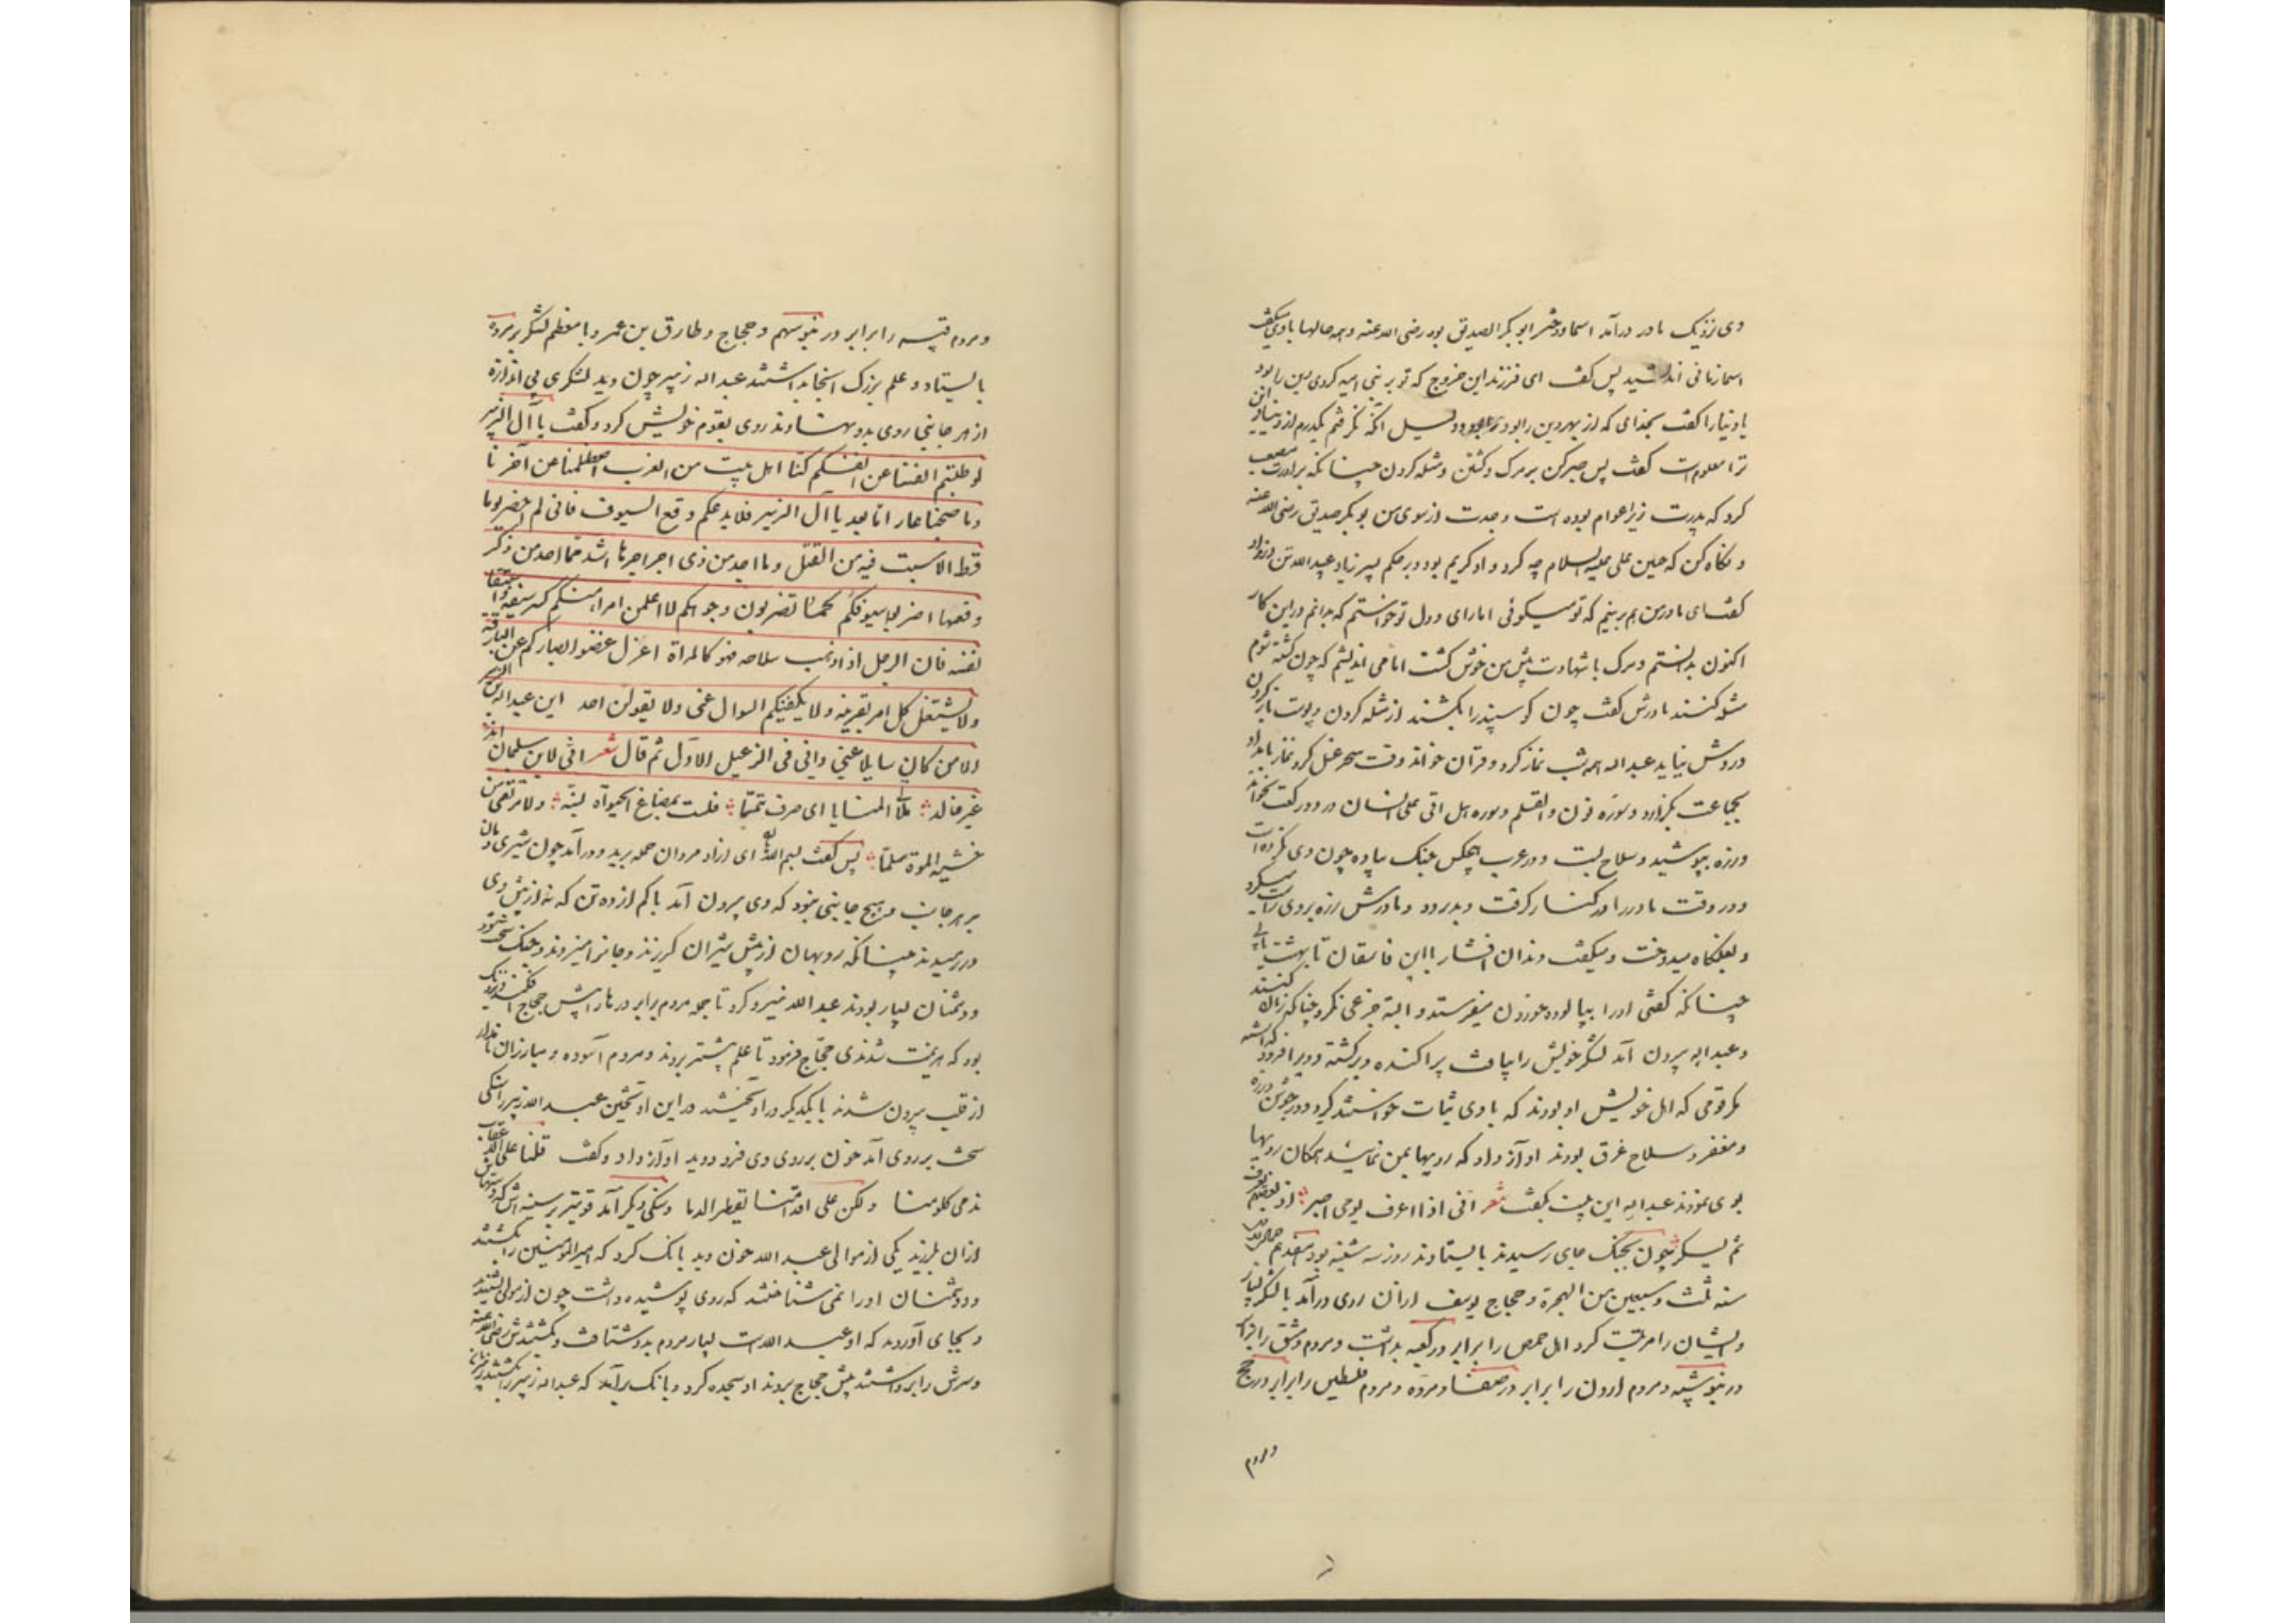 وی نزدیک مادر درآمد اسما دختر ابو بکر الصدیق بود رضی الله عنه و همه حالها با وی بگفت
اسما زمانی اندیشید پس گفت ای فرزند این خروج که تو بر بنی امیه کردی دین را بود
یا دنیا را گفت بخدای که از بهر دین را بود و دلیل آنکه نگرفتم یکدرم از دنیا و این
ترا معلومست گفت پس صبر کن بر مرک و کشتن و مثله کردن چنانکه برادرت مصعب
کرد که پدرت زبیر اعوام بوده است و جدت از سوی من بو بکر صدیق رضی الله عنه
و نکاه کن که حسین علی علیه السلام چه کرد و او کریم بود و بر حکم پسر زیاد عبید الله تن در نداد
گفت ای مادر من هم برینم که تو میکوئی اما رای و دل تو خواستم که بدانم در این کار
اکنون بدانستم و مرک با شهادت پیش من خوش گشت اما می اندیشم که چون کشته شوم
مثله کنند مادرش گفت چون کوسپند را بکشند از مثله کردن و پوست باز کردن
دردش نیاید عبد اله همه شب نماز کرد و قران خواند وقت سحر غسل کرد و نماز بامداد
بجماعت بگزارد و سوره نون و القلم و سوره هل اتی علی الانسان در دو رکعت بخواند
و زره بپوشید و سلاح بست و در عرب هیچکس جنک پیاده چون وی نکرده است
و در وقت مادر را در کنار کرفت و بدرود و مادرش زره بر وی راست میکرد
و بغلکاه میدوخت و میگفت دندان افشار با این فاسقان تا بهشت یابی
چنانکه گفتی او را بپالوده خوردن میفرستد و البته جزعی نکرد چنانکه زنان کنند
و عبد اله بیرون آمد لشکر خویش را بیافت پراکنده و برگشته و ویرا فرو گذاشته
مکر قومی که اهل خویش او بودند که با وی ثبات خواستند کرد و در جوشن و زره
و مغفر و سلاح غرق بودند او آواز داد که رویها بمن نمائید همکان رویها
بوی نمودند عبد اله این بیت بگفت شعر انی اذا اعرف یومی اصبر اذ بعضهم یعرف
ثم ینکر چون بجنک جای رسیدند بایستادند روز سه شنبه بود هفدهم جمادی الاول
سنه ثلث و سبعین من الهجرة و حجاج یوسف ازان روی درآمد با لشکر بسیار
و ایشان را مرتبت کرد اهل حمص را برابر در کعبه بداشت و مردم دمشق را برابر
در بنو شیبه و مردم اردن را برابر در صفا و مروه و مردم فلسطین را برابر در جمح
و مردم
و مردم قنیسه را برابر در بنو سهم و حجاج و طارق بن عمرو با معظم لشکر بر مروه
بایستاد و علم بزرک آنجا بداشتند عبد اله زبیر چون دید لشکری بی اندازه
از هر جانبی روی بدو نهادند روی بقوم خویش کرد و گفت یا آل الزبیر
لو طلبتم انفسنا عن انفسکم کنا اهل بیت من العرب اصطلمنا عن آخرنا
و ما صحبنا عار اما بعد یا آل الزبیر فلا یدعکم وقع السیوف فانی لم احضر یوما
قط الا سبت فیه من القتل و ما اجد من ذی اجراحها اشد مما اجد من ذکر
وقعها
نفسه فان الرجل اذا ذهب سلاحه فهو کالمراة اعزل غضوا ابصارکم عن البارقة
ولیشتغل کل امر بقرینه و لا یکفینکم السوال عنی و لا یقولن احد این عبد اله بن الزبیر
الا من کان سایلا عنی وانی فی الزعیل الاول ثم قال شعر ابی لابن سلمی انه
غیر خالد ملاقی المنایا ای صرف تیمما فلست بمبتاع الحیوة بسبة ولا مرتقی من
خشیة الموت سلما پس گفت بسم الله ای آزاد مردان حمله برید و درآمد چون شیری دمان
بر هر جانب و هیچ جانبی نبود که وی بیرون آمد با کم از ده تن که نه از پیش وی
در رمیدند چنانکه روبهان از پیش شیران کریزند و جانرا میزدند و جنک سخت شد
و دشمنان بسیار بودند عبد الله نیرو کرد تا همه مردم برابر درها را پیش حجاج افکند و نزدیک
بود که هزیمت شدندی حجاج فرمود تا علم پیشتر بردند و مردم آسوده و مبارزان نامدار
از قلب بیرون شدند با یکدیکر در آویختند در این آویختن عبد الله زبیر را سنکی
سخت بر روی آمد خون بر روی وی فرو دوید آواز داد و گفت فلسنا علی الاعقاب
تدمی کلومنا ولکن علی اقدامنا تقطر الدما و سنکی دیکر آمد قویتر بر سینه اش که دستهاش
ازان بلرزید یکی از موالی عبد الله خون دید بانک کرد که امیر المومنین را بکشتند
و دشمنان او را نمی شناختند که روی پوشیده داشت چون از مولی شنیدند
و بجای آوردند که او عبد اللهست بسیار مردم بدو شتافت و بکشتندش رضی الله عنه
و سرش را برداشتند پیش حجاج بردند او سجده کرد و بانک برآمد که عبد اله زبیر را بکشتند